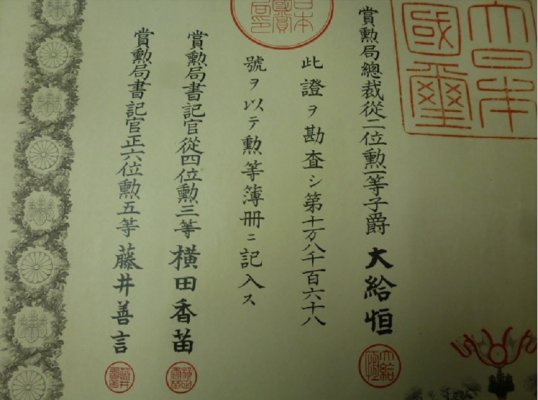 大日本國璽
賞勲局總裁從二位勲一等子爵 大給恒
此證ヲ勘査シ第十万八千百六十八
號ヲ以テ勲等簿冊ニ記入ス
賞勲局書記官從四位勲三等 横田香苗
賞勲局書記官正六位勲五等 藤井善言